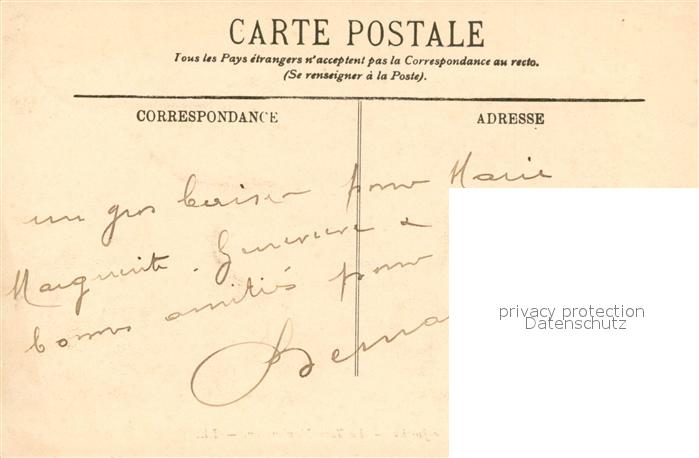 CARTE POSTALE
Tous les Pays étrangers n'acceptent pas la Correspondance au recto.
(Se renseigner à la Poste).
CORRESPONDANCE
ADRESSE
un gros baiser pour Marie
Marguerite. Genevieve &
bonnes amitiés pour
privacy protection
Datenschutz